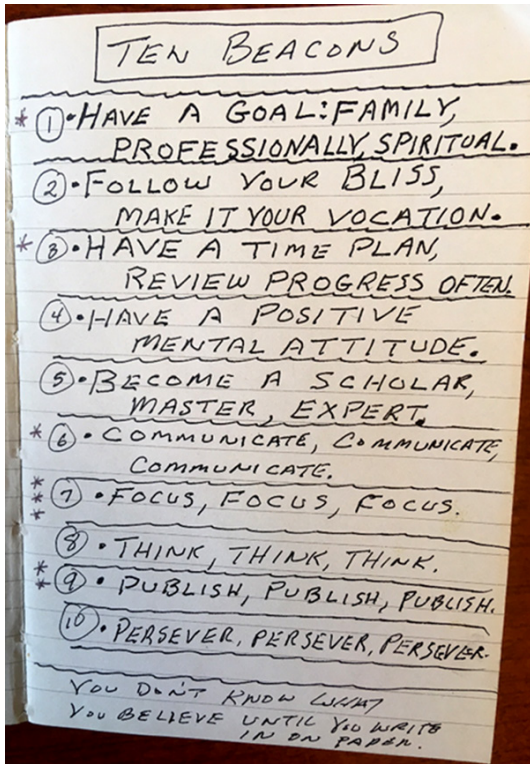 TEN BEACONS
* 1 • HAVE A GOAL: FAMILY,
PROFESSIONALLY, SPIRITUAL.
2 • FOLLOW YOUR BLISS,
MAKE IT YOUR VOCATION.
* 3 • HAVE A TIME PLAN,
REVIEW PROGRESS OFTEN.
4 • HAVE A POSITIVE
MENTAL ATTITUDE.
5 • BECOME A SCHOLAR,
MASTER, EXPERT.
* 6 • COMMUNICATE, COMMUNICATE,
COMMUNICATE.
*** 7 • FOCUS, FOCUS, FOCUS.
8 • THINK, THINK, THINK.
** 9 • PUBLISH, PUBLISH, PUBLISH.
10 • PERSEVER, PERSEVER, PERSEVER.
YOU DON'T KNOW WHAT
YOU BELIEVE UNTIL YOU WRITE
IN ON PAPER.